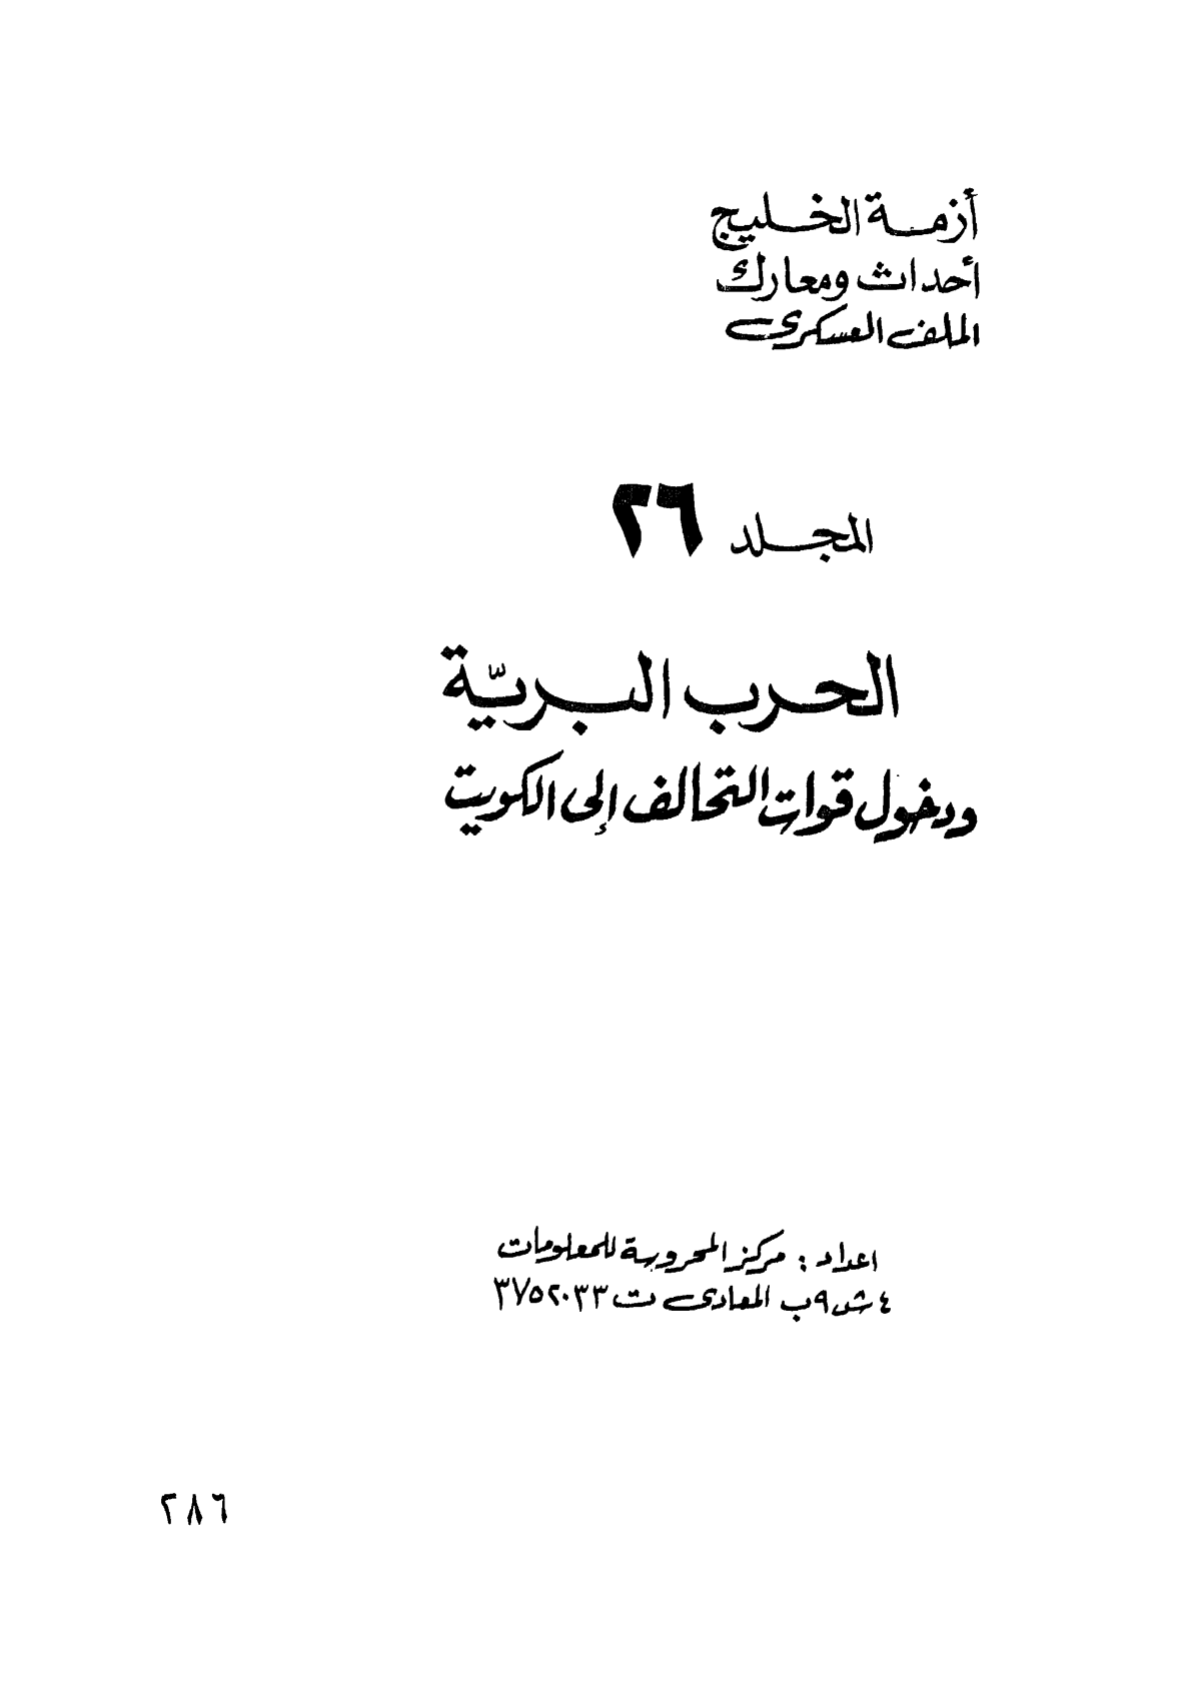 أزمة الخليج
أحداث ومعارك
الملف العسكرى
المجلد ٢٦
الحرب البريّة
ودخول قوات التحالف إلى الكويت
اعداد : مركز المحروسة للمعلومات
٤ ش ٩ب المعادى ت ٣٧٥٢٠٣٣
٢٨٦